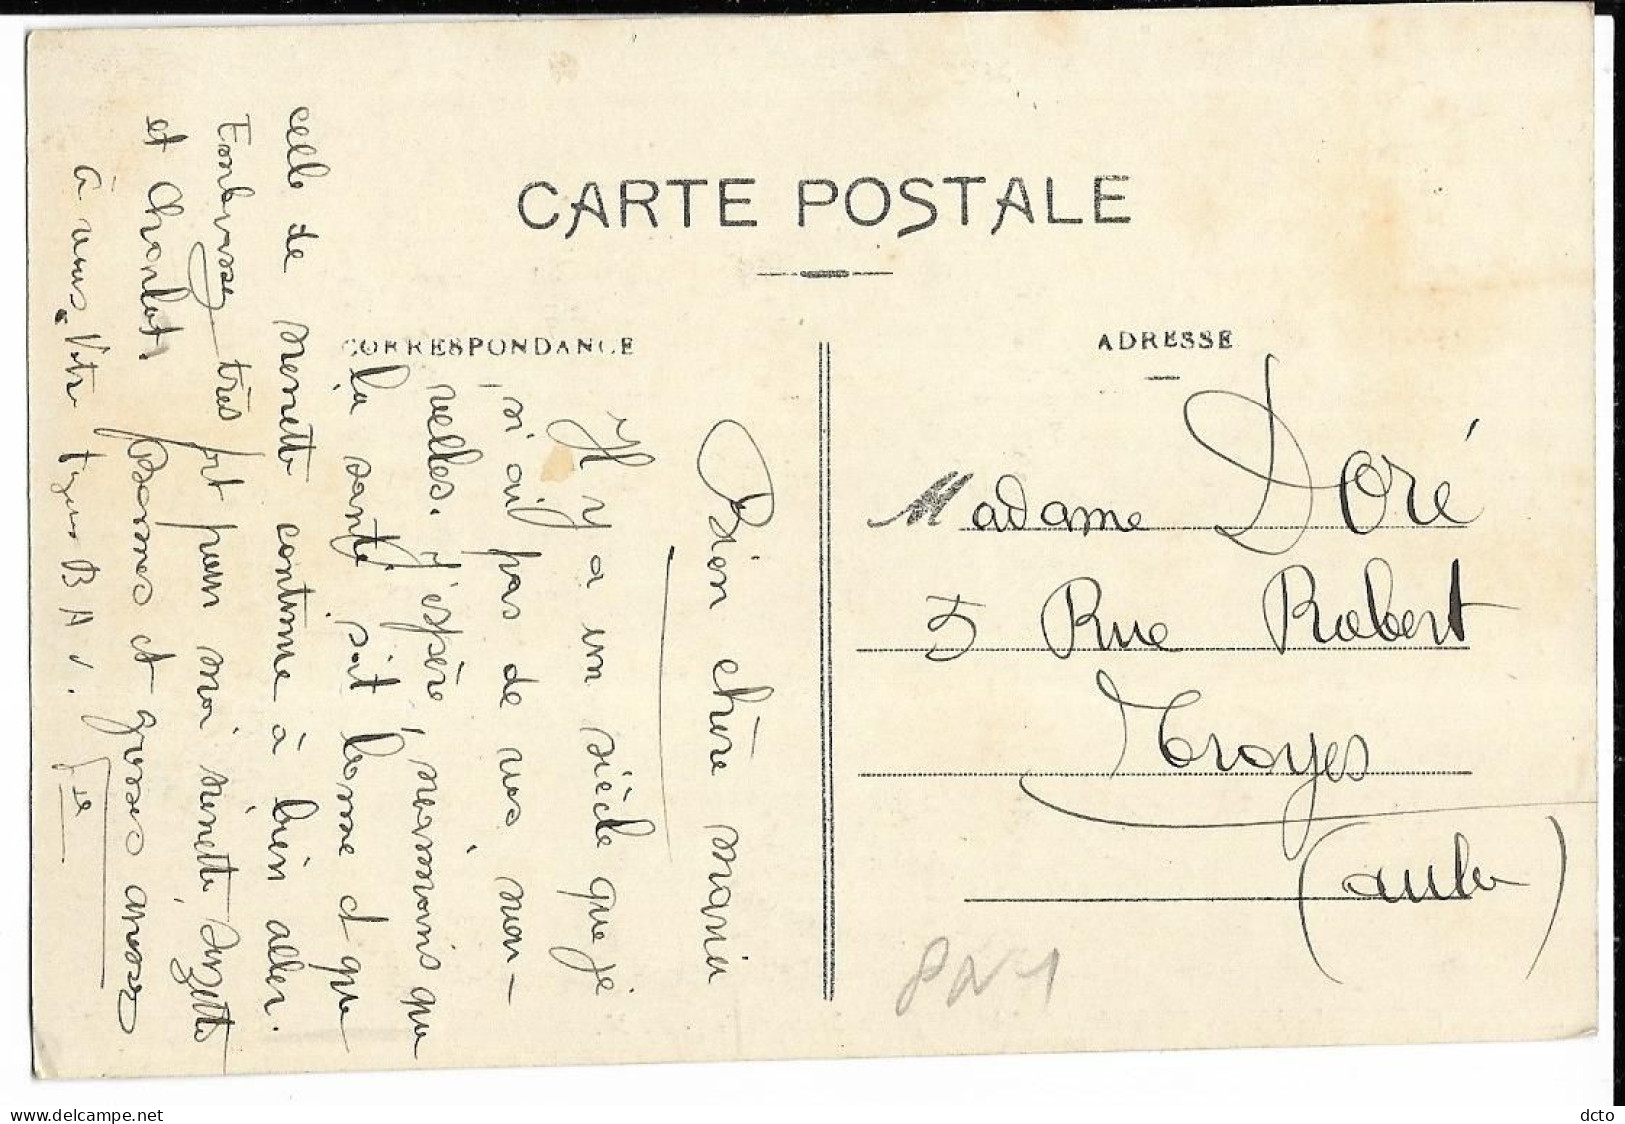 CARTE POSTALE
CORRESPONDANCE
ADRESSE
Bien chère
Il y a un siècle que je
n'ai pas de vos nou-
velles. J'espère, néanmoins que
la santé soit bonne et que
celle de Nénette continue à bien aller.
Embrassez très fort pour moi ninette, Suzette
et Charlot. Bonnes et grosses
à vous. Votre
Madame Doré
5 Rue Robert
Troyes
(Aube)
delcampe.net
dcto